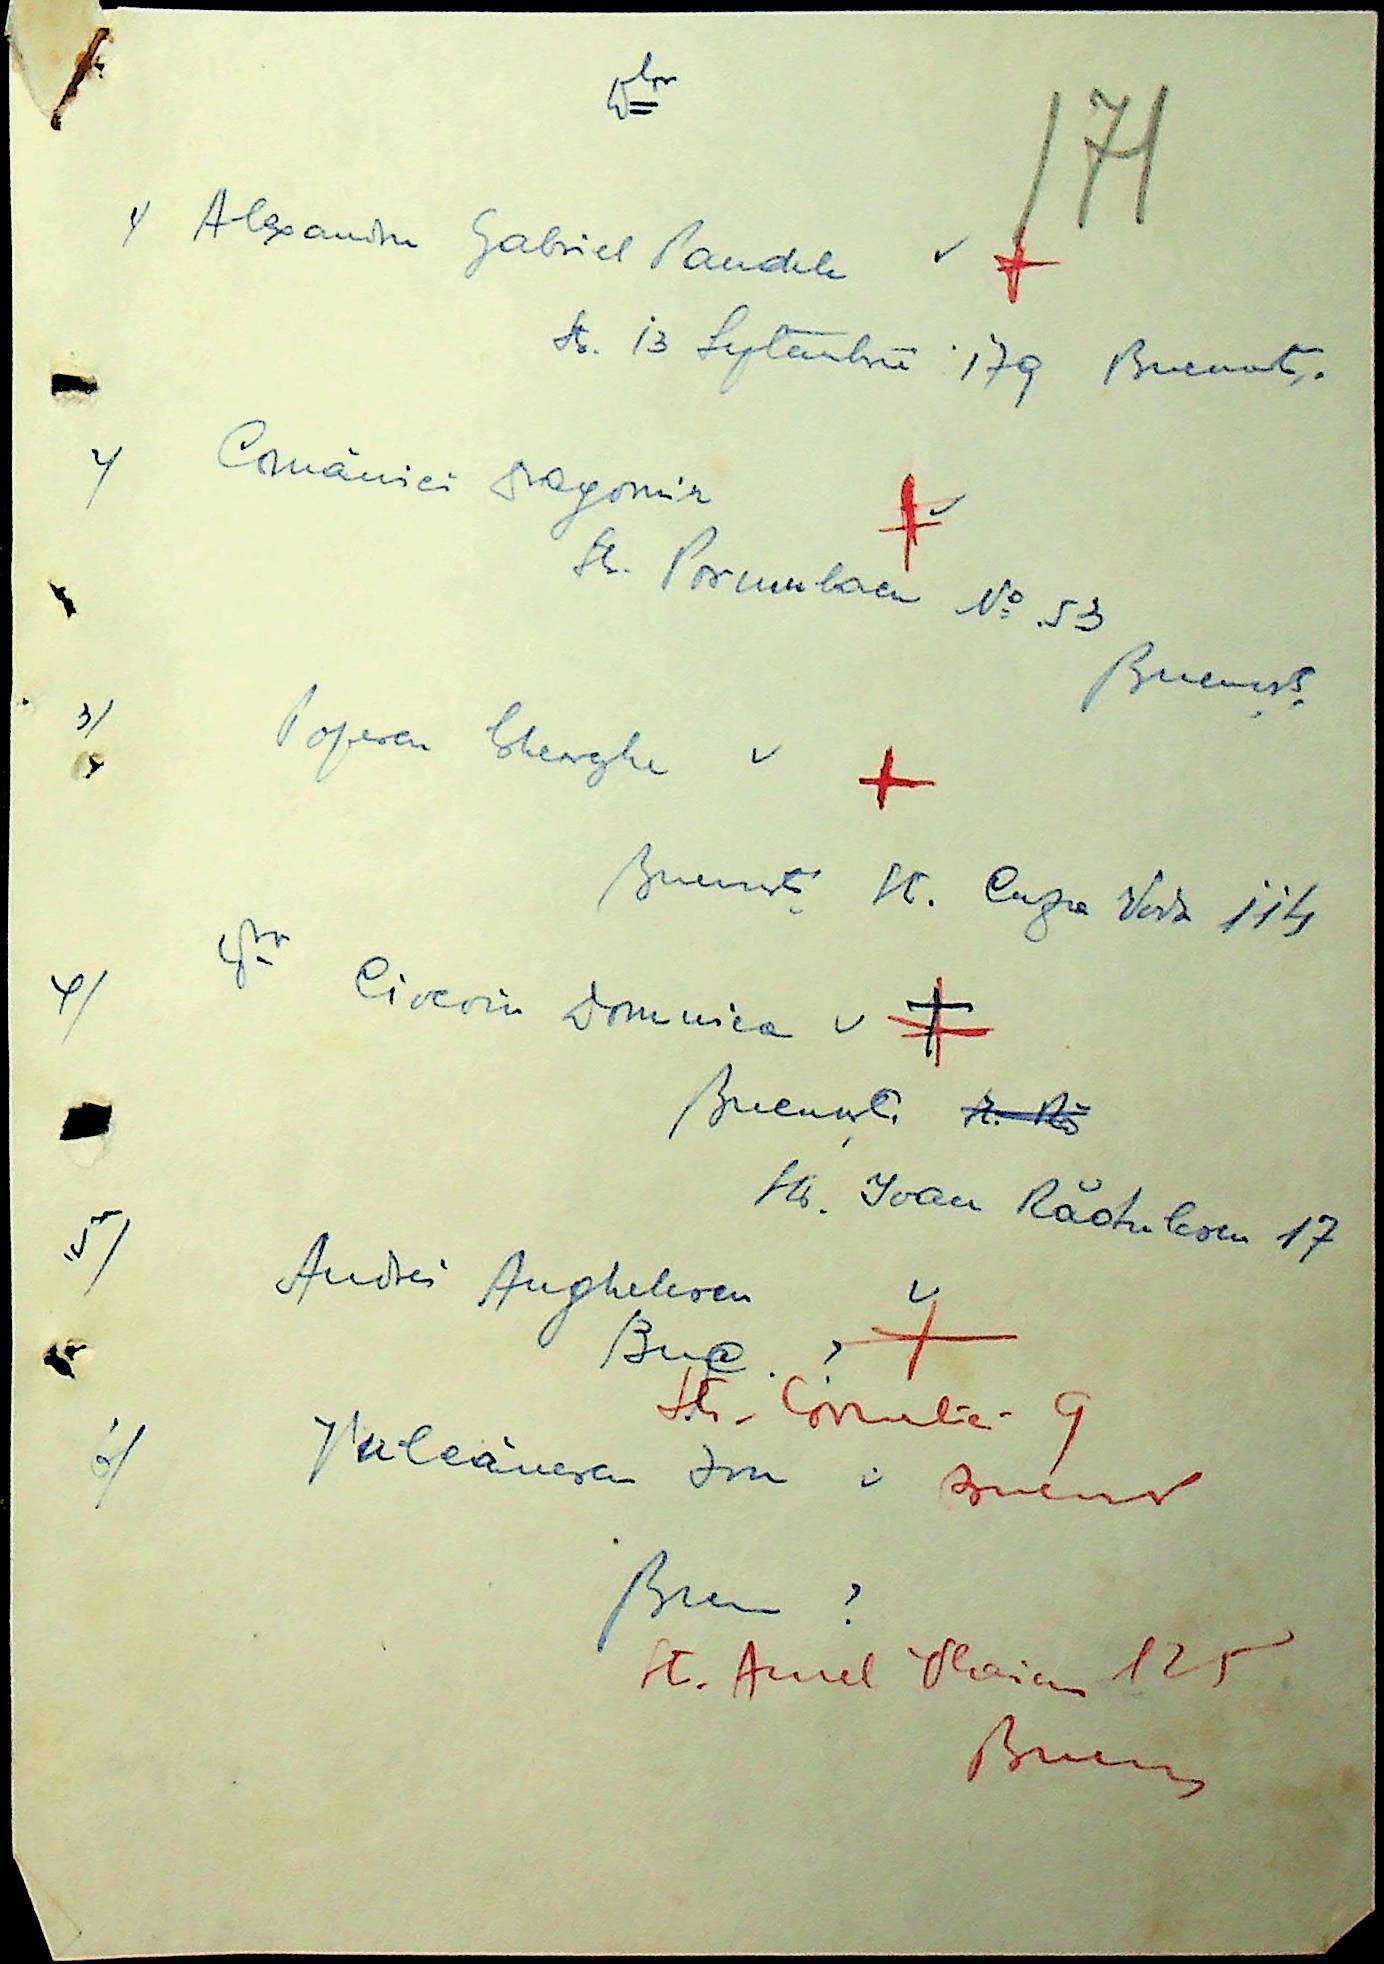 Dlor
171
1/ Alexandru Gabriel Pandele
Str. 13 Septembrie 179 Bucureşti.
2/ Comănici Dragomir
Str. Porumbacu No 53
Bucureşti
3/ Popescu Gheorghe
Bucureşti Str. Cuza Vodă 114
4/ Domnica
Bucureşti
Str. Ioan Rădulescu 17
5/ Andrei Anghelescu
Buc. ?
Str. 9
6/ Vulcănescu Ion
Bucu ?
Str. Aurel Vlaicu 125